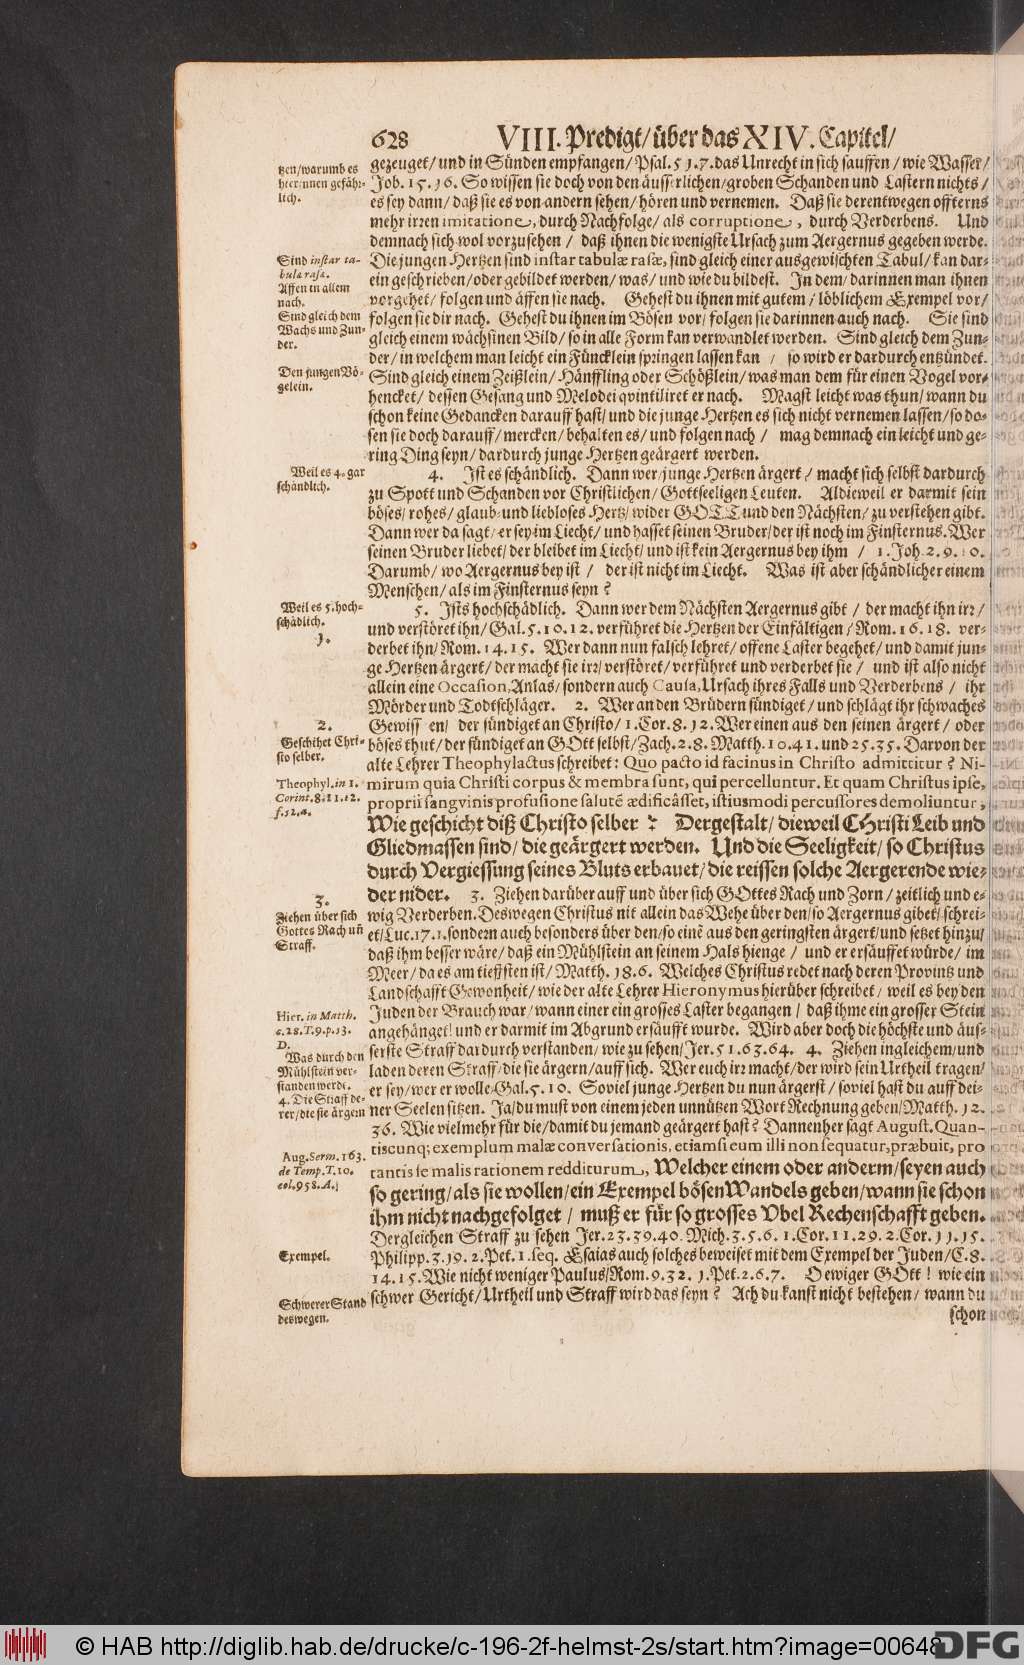 628 VIII. Predigt/ über das XIV. Capitel/
tzen/warumb es
hierinnen gefähr-
lich.
gezeuget/ und in Sünden empfangen/ Psal. 51.7. das Unrecht in sich sauffen/ wie Wasser/
Job. 15.16. So wissen sie doch von den äusserlichen/ groben Schanden und Lastern nichts/
es sey dann/ daß sie es von andern sehen/ hören und vernemen. Daß sie derentwegen offterns
mehr irren imitatione, durch Nachfolge/ als corruptione, durch Verderbens. Und
demnach sich wol vorzusehen/ daß ihnen die wenigste Ursach zum Aergernus gegeben werde.
Sind instar ta-
bula rasa.
Affen in allem
nach.
Sind gleich dem
Wachs und Zun-
der.
Die jungen Hertzen sind instar tabulæ rasæ, sind gleich einer ausgewischten Tabul/ kan dar-
ein geschrieben/ oder gebildet werden/ was/ und wie du bildest. In dem/ darinnen man ihnen
vorgehet/ folgen und äffen sie nach. Gehest du ihnen mit gutem/ löblichem Exempel vor/
folgen sie dir nach. Gehest du ihnen im Bösen vor/ folgen sie darinnen auch nach. Sie sind
gleich einem wächsinen Bild/ so in alle Form kan verwandlet werden. Sind gleich dem Zun-
der/ in welchem man leicht ein Füncklein springen lassen kan / so wird er dardurch entzündet.
Den jungen Vö-
gelein.
Sind gleich einem Zeißlein/ Hänffling oder Schößlein/ was man dem für einen Vogel vor-
hencket/ dessen Gesang und Melodei qvintiliret er nach. Magst leicht was thun/ wann du
schon keine Gedancken darauff hast/ und die junge Hertzen es sich nicht vernemen lassen/ so do-
sen sie doch darauff/ mercken/ behalten es/ und folgen nach / mag demnach ein leicht und ge-
ring Ding seyn/ dardurch junge Hertzen geärgert werden.
Weil es 4. gar
schändlich.
4. Ist es schändlich. Dann wer junge Hertzen ärgert/ macht sich selbst dardurch
zu Spott und Schanden vor Christlichen/ Gottseeligen Leuten. Aldieweil er darmit sein
böses/ rohes/ glaub- und liebloses Hertz/ wider GOTT und den Nächsten/ zu verstehen gibt.
Dann wer da sagt/ er sey im Liecht/ und hasset seinen Bruder/ der ist noch im Finsternus. Wer
seinen Bruder liebet/ der bleibet im Liecht/ und ist kein Aergernus bey ihm / 1. Joh. 2.9.10.
Darumb/ wo Aergernus bey ist / der ist nicht im Liecht. Was ist aber schändlicher einem
Menschen/ als im Finsternus seyn?
Weil es 5. hoch-
schädlich.
1.
5. Ists hochschädlich. Dann wer dem Nächsten Aergernus gibt / der macht ihn irr/
und verstöret ihn/ Gal. 5.10.12. verführet die Hertzen der Einfältigen/ Rom. 16.18. ver-
derbet ihn/ Rom. 14.15. Wer dann nun falsch lehret/ offene Laster begehet/ und damit jun-
ge Hertzen ärgert/ der macht sie irr/ verstöret/ verführet und verderbet sie / und ist also nicht
allein eine Occasion, Anlas/ sondern auch Causa, Ursach ihres Falls und Verderbens / ihr
Mörder und Todtschläger. 2. Wer an den Brüdern sündiget/ und schlägt ihr schwaches
2.
Geschihet Chri-
sto selber.
Gewissen/ der sündiget an Christo/ 1. Cor. 8.12. Wer einen aus den seinen ärgert / oder
böses thut/ der sündiget an GOtt selbst/ Zach. 2.8. Matth. 10.41. und 25.35. Darvon der
alte Lehrer Theophylactus schreibet: Quo pacto id facinus in Christo admittitur? Ni-
Theophyl. in 1.
Corint. 8.11.12.
f.52.a.
mirum quia Christi corpus & membra sunt, qui percelluntur. Et quam Christus ipse,
proprii sangvinis profusione salutē ædificâsset, istiusmodi percussores demoliuntur,
Wie geschicht diß Christo selber? Dergestalt/ dieweil CHristi Leib und
Gliedmassen sind/ die geärgert werden. Und die Seeligkeit/ so Christus
durch Vergiessung seines Bluts erbauet/ die reissen solche Aergerende wie-
der nider. 3. Ziehen darüber auff und über sich GOttes Rach und Zorn/ zeitlich und e-
3.
Ziehen über sich
Gottes Rach uñ
Straff.
wig Verderben. Deswegen Christus nit allein das Wehe über den/ so Aergernus gibet/ schrei-
et/ Luc. 17.1. sondern auch besonders über den/ so einē aus den geringsten ärgert/ und setzet hinzu/
daß ihm besser wäre/ daß ein Mühlstein an seinem Hals hienge / und er ersäuffet würde/ im
Meer/ da es am tieffsten ist/ Matth. 18.6. Welches Christus redet nach deren Provintz und
Landschafft Gewonheit/ wie der alte Lehrer Hieronymus hierüber schreibet/ weil es bey den
Hier. in Matth.
c.28.T.9.p.13.
D.
Was durch den
Mühlstein ver-
standen werde.
4. Die Straff de-
rer/ die sie ärgern
Juden der Brauch war/ wann einer ein grosses Laster begangen / daß ihme ein grosser Stein
angehänget/ und er darmit im Abgrund ersäufft wurde. Wird aber doch die höchste und äus-
serste Straff dardurch verstanden/ wie zu sehen/ Jer. 51.63.64. 4. Ziehen ingleichem/ und
laden deren Straff/ die sie ärgern/ auff sich. Wer euch irr macht/ der wird sein Urtheil tragen/
er sey/ wer er wolle/ Gal. 5.10. Soviel junge Hertzen du nun ärgerst / soviel hast du auff dei-
ner Seelen sitzen. Ja/ du must von einem jeden unnützen Wort Rechnung geben/ Matth. 12.
36. Wie vielmehr für die/ damit du jemand geärgert hast? Dannenher sagt August. Quan-
Aug. Serm. 163.
de Temp. T.10.
col. 958. A.
tiscunq; exemplum malæ conversationis, etiamsi eum illi non sequatur, præbuit, pro
tantis se malis rationem redditurum, Welcher einem oder anderm/ seyen auch
so gering/ als sie wollen/ ein Exempel bösen Wandels geben/ wann sie schon
ihm nicht nachgefolget / muß er für so grosses Ubel Rechenschafft geben.
Dergleichen Straff zu sehen Jer. 23.39.40. Mich. 3.5.6. 1. Cor. 11.29. 2. Cor. 11.15.
Exempel.
Philipp. 3.19. 2. Pet. 1. seq. Esaias auch solches beweiset mit dem Exempel der Juden/ C. 8.
14.15. Wie nicht weniger Paulus/ Rom. 9.32. 1. Pet. 2.6.7. O ewiger GOtt! wie ein
Schwerer Stand
deswegen.
schwer Gericht/ Urtheil und Straff wird das seyn? Ach du kanst nicht bestehen/ wann du
schon
© HAB http://diglib.hab.de/drucke/c-196-2f-helmst-2s/start.htm?image=00648
DFG